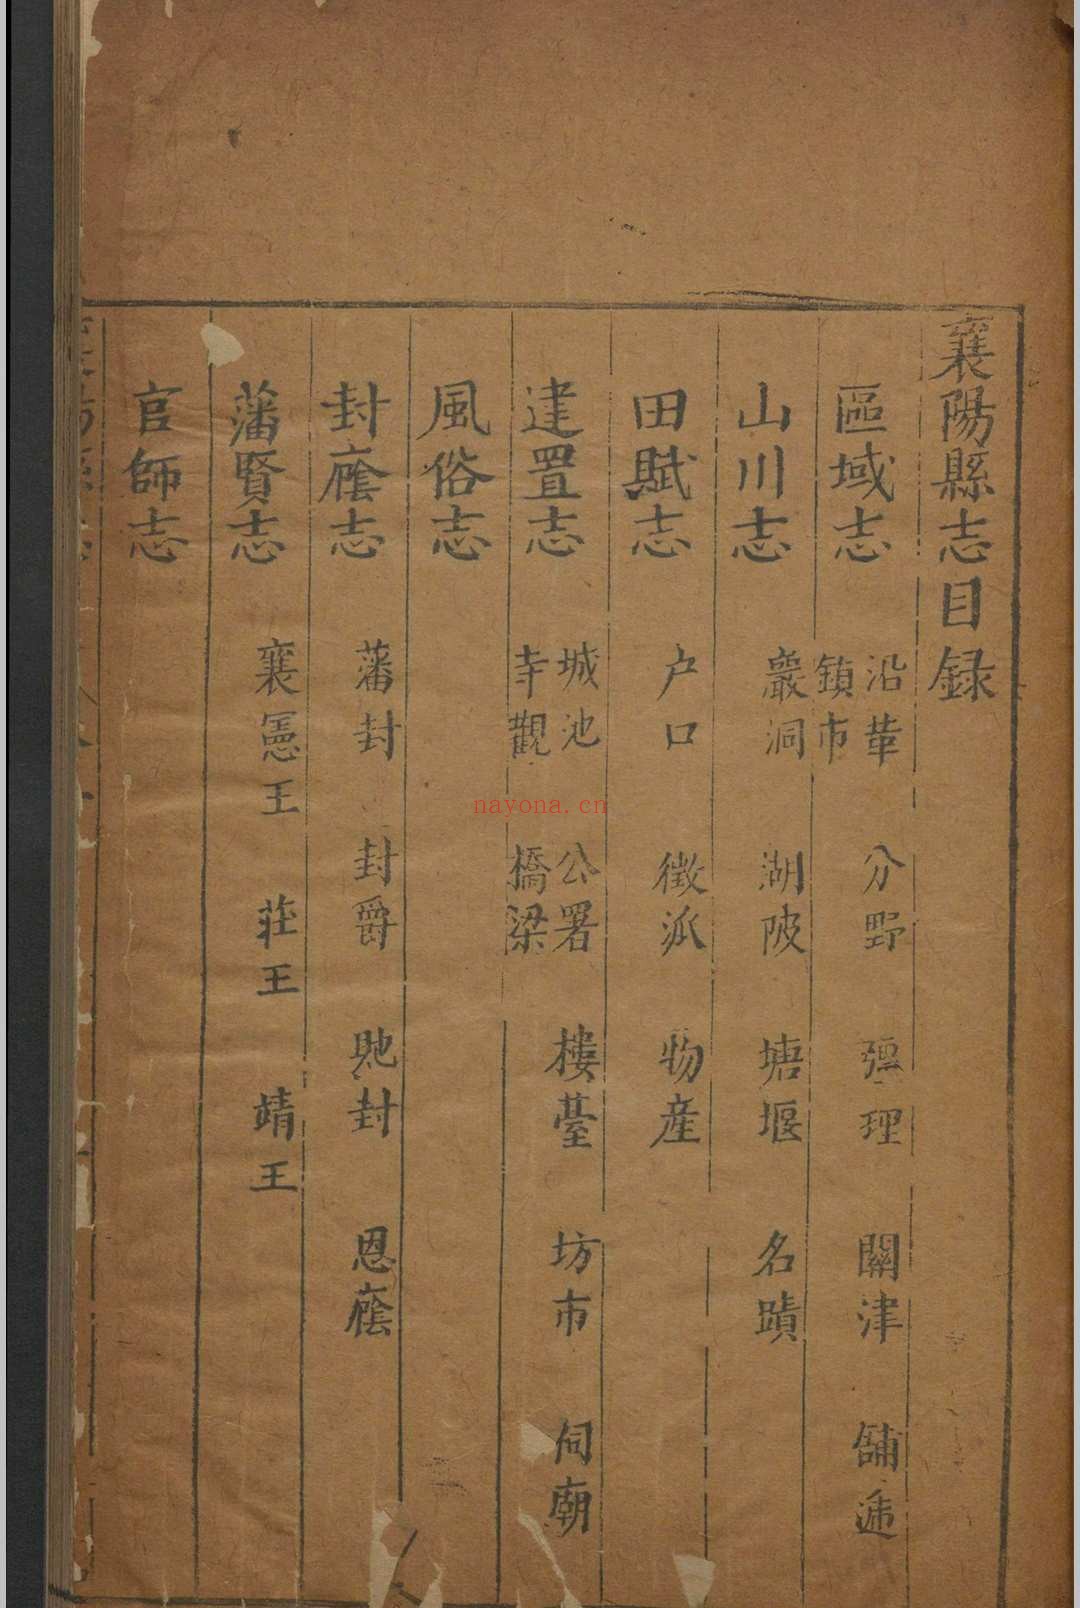 襄陽縣志目録
區域志 沿革 分野 彊理 關津 舗逓
鎮市
山川志 巖洞 湖陂 塘堰 名蹟
田賦志 户口 徵派 物産
建置志 城池 公署 樓臺 坊市 祠廟
寺觀 橋梁
風俗志
封廕志 藩封 封爵 貤封 恩廕
藩賢志 襄憲王 莊王 靖王
官師志
nayona.cn